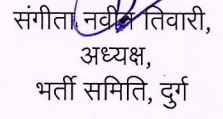 संगीता नवीन तिवारी,
अध्यक्ष,
भर्ती समिति, दुर्ग